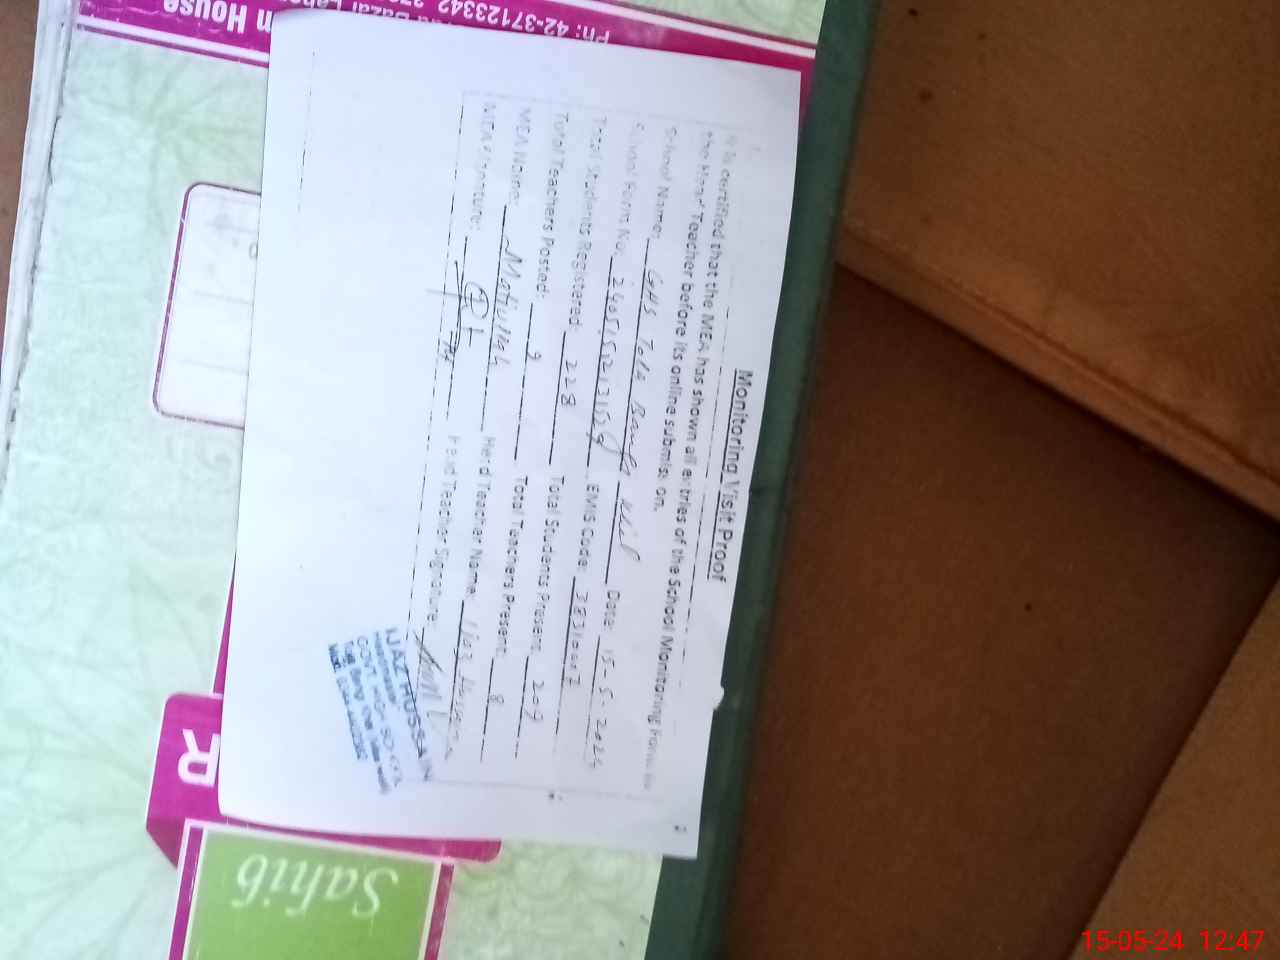 Monitoring Visit Proof
It is certified that the MEA has shown all entries of the School Monitoring Form to
the Head Teacher before its online submission.
School Name: GHS Tola Bangi Khel Date: 15-5-2024
School Form No:
EMIS Code:
Total Students Registered: 228 Total Students Present: 209
Total Teachers Posted: 9 Total Teachers Present: 8
MEA Name: Matiullah Head Teacher Name: Ijaz Hussain
MEA Signature: Head Teacher Signature:
IJAZ HUSSAIN
Headmaster
GOVT. HIGH SCHOOL
Tola Bangi Khel
n House
Ph: 42-37123342
R
Sahib
15-05-24 12:47